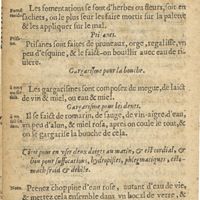 Les fomentations se font d'herbes ou fleurs, soit en
sachets, ou le plus leur les faire mottir sus la palette
& les appliquer sur le mal.
Ptisanes.
Ptisanes sont faites de prunaux, orge, regalisse, vn
peu d'esquine, & le faict-on bouillir auec eau de ri-
uiere.
Gargarisme pour la bouche.
Les gargarismes sont composez de megue, de laict
de vin & miel, ou eau & miel.
Gargarisme pour les dents.
Il se faict de romarin, de sauge, de vin-aigre d'eau,
vn peu d'alun, & miel rosa, apres on coule le tout, &
on se gargarise la bouche de cela.
pour en vser deux doigts au matin, & est cordial, &
bon pour suffocations, hydropisies, phlegmatiques,
mach froid & debile.
Nota. Prenez choppine d'eau rose, autant d'eau de vie,
& mettez cela ensemble dans vn bocal de verre, &